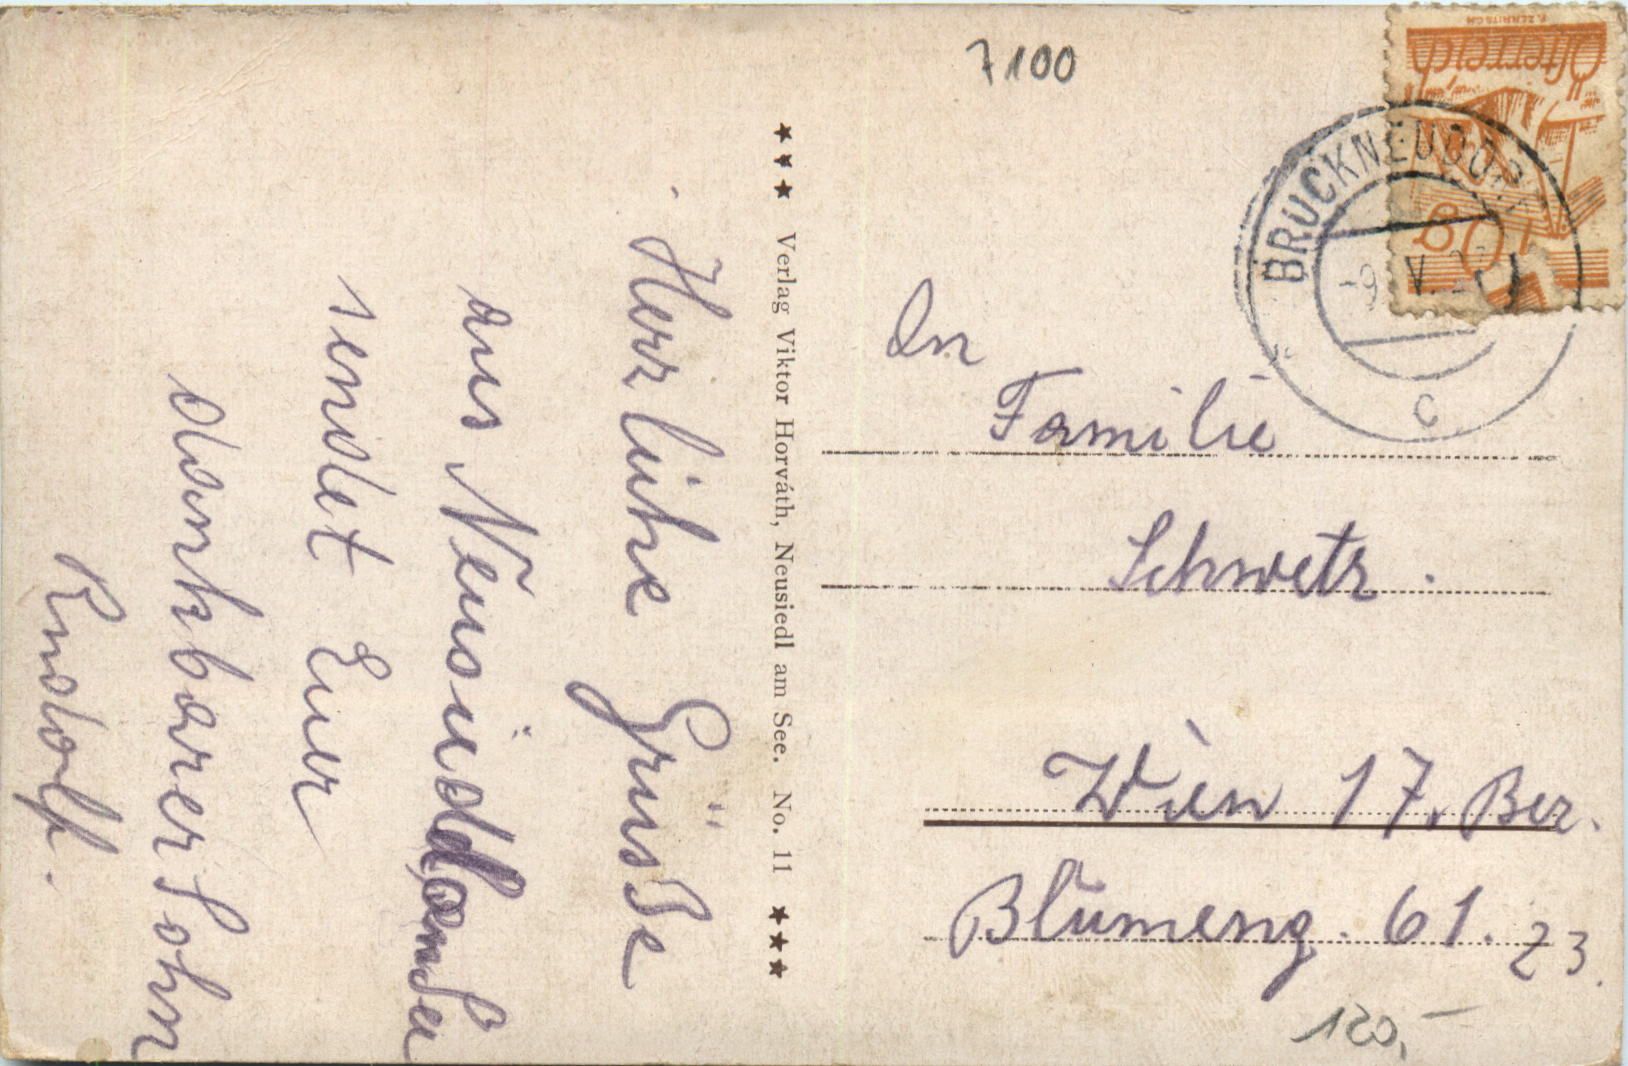 7100
F. ZERRITSCH
Österreich
8
BRUCKNEUDORF
-9. V.
C
★★★ Verlag Viktor Horváth, Neusiedl am See. No. 11 ★★★
Herzliche Grüsse
aus Neusiedl am See
sendet Euer
dankbarer Sohn
Rudolf.
An
Familie
Schwetz.
Wien 17. Bez.
Blumeng. 61. 23.
120,-